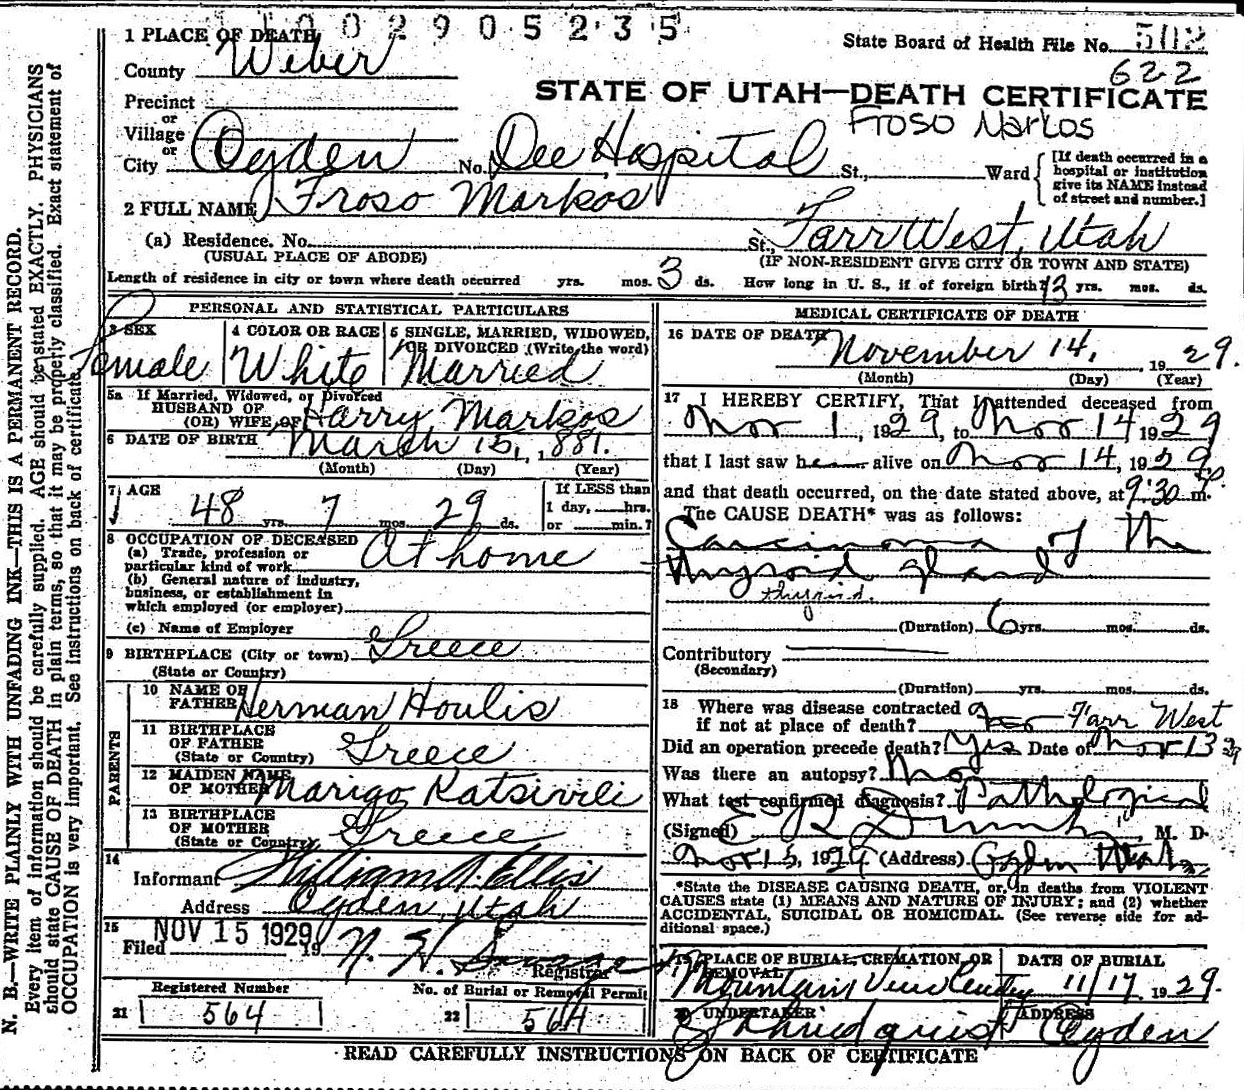 1 0 0 2 9 0 5 2 3 5
1 PLACE OF DEATH
State Board of Health File No. 502
622
County Weber
STATE OF UTAH—DEATH CERTIFICATE
Precinct
or
Froso Markos
Village
or
City Ogden No. Dee Hospital St., Ward
[If death occurred in a
hospital or institution
give its NAME instead
of street and number.]
2 FULL NAME Froso Markos
(a) Residence. No. St., Farr West, Utah
(USUAL PLACE OF ABODE) (IF NON-RESIDENT GIVE CITY OR TOWN AND STATE)
Length of residence in city or town where death occurred yrs. mos. 3 ds. How long in U. S., if of foreign birth? 13 yrs. mos. ds.
PERSONAL AND STATISTICAL PARTICULARS
3 SEX
Female
4 COLOR OR RACE
White
5 SINGLE, MARRIED, WIDOWED,
OR DIVORCED (Write the word)
Married
5a If Married, Widowed, or Divorced
HUSBAND OF
(OR) WIFE OF Harry Markos
6 DATE OF BIRTH March 15, 1881.
(Month) (Day) (Year)
7 AGE
48 yrs. 7 mos. 29 ds.
If LESS than
1 day, hrs.
or min.?
8 OCCUPATION OF DECEASED
(a) Trade, profession or
particular kind of work At home
(b) General nature of industry,
business, or establishment in
which employed (or employer)
(c) Name of Employer
9 BIRTHPLACE (City or town) Greece
(State or Country)
PARENTS
10 NAME OF
FATHER Herman Houlis
11 BIRTHPLACE
OF FATHER
(State or Country) Greece
12 MAIDEN NAME
OF MOTHER Marigo Katsivili
13 BIRTHPLACE
OF MOTHER
(State or Country) Greece
14
Informant William A. Ellis
Address Ogden, Utah
15
Filed NOV 15 1929 19 N. H.
Registrar
Registered Number No. of Burial or Removal Permit
21 564 22 564
MEDICAL CERTIFICATE OF DEATH
16 DATE OF DEATH November 14, 1929.
(Month) (Day) (Year)
17 I HEREBY CERTIFY, That I attended deceased from
Nov 1, 1929, to Nov 14 1929
that I last saw h alive on Nov 14, 1929
and that death occurred, on the date stated above, at 9:30 P m.
The CAUSE DEATH* was as follows:
Carcinoma of the
thyroid gland
thyroid.
(Duration) 6 yrs. mos. ds.
Contributory
(Secondary)
(Duration) yrs. mos. ds.
18 Where was disease contracted
if not at place of death? Farr West
Did an operation precede death? Yes Date of Nov 13 29
Was there an autopsy? No
What test confirmed diagnosis? Pathological
(Signed) M. D.
Nov 15, 1929 (Address) Ogden Utah
*State the DISEASE CAUSING DEATH, or, in deaths from VIOLENT
CAUSES state (1) MEANS AND NATURE OF INJURY; and (2) whether
ACCIDENTAL, SUICIDAL OR HOMICIDAL. (See reverse side for ad-
ditional space.)
19 PLACE OF BURIAL, CREMATION, OR
REMOVAL
DATE OF BURIAL
Mountain View 11/17 1929.
20 UNDERTAKER ADDRESS
Ogden
READ CAREFULLY INSTRUCTIONS ON BACK OF CERTIFICATE
N. B.—WRITE PLAINLY WITH UNFADING INK—THIS IS A PERMANENT RECORD.
Every item of information should be carefully supplied. AGE should be stated EXACTLY. PHYSICIANS
should state CAUSE OF DEATH in plain terms, so that it may be properly classified. Exact statement of
OCCUPATION is very important. See instructions on back of certificate.